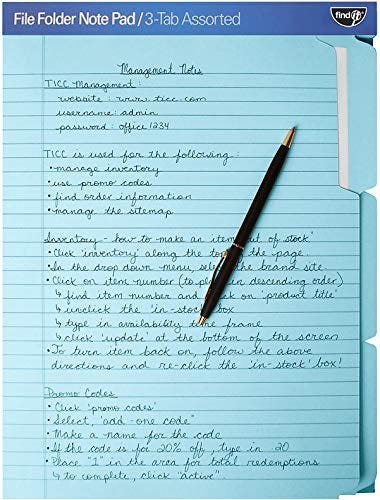 File Folder Note Pad / 3-Tab Assorted
find it
Management Notes
TICC Management:
website: www.ticc.com
username: admin
password: office1234
TICC is used for the following:
• manage inventory
• use promo codes
• find order information
• manage the sitemap
Inventory - how to make an item 'out of stock'
• Click 'inventory' along the top of the page.
• In the drop down menu, select the brand site.
• Click on item number (to place in descending order)
↳ find item number and click on 'product title'
↳ unclick the 'in-stock' box
↳ type in availability time frame
↳ click 'update' at the bottom of the screen
• To turn item back on, follow the above
directions and re-click the 'in-stock' box!
Promo Codes
• Click 'promo codes'
• Select, "add-one code"
• Make a name for the code
• If the code is for 20% off, type in 20
• Place "1" in the area for total redemptions
↳ to complete, click "active".